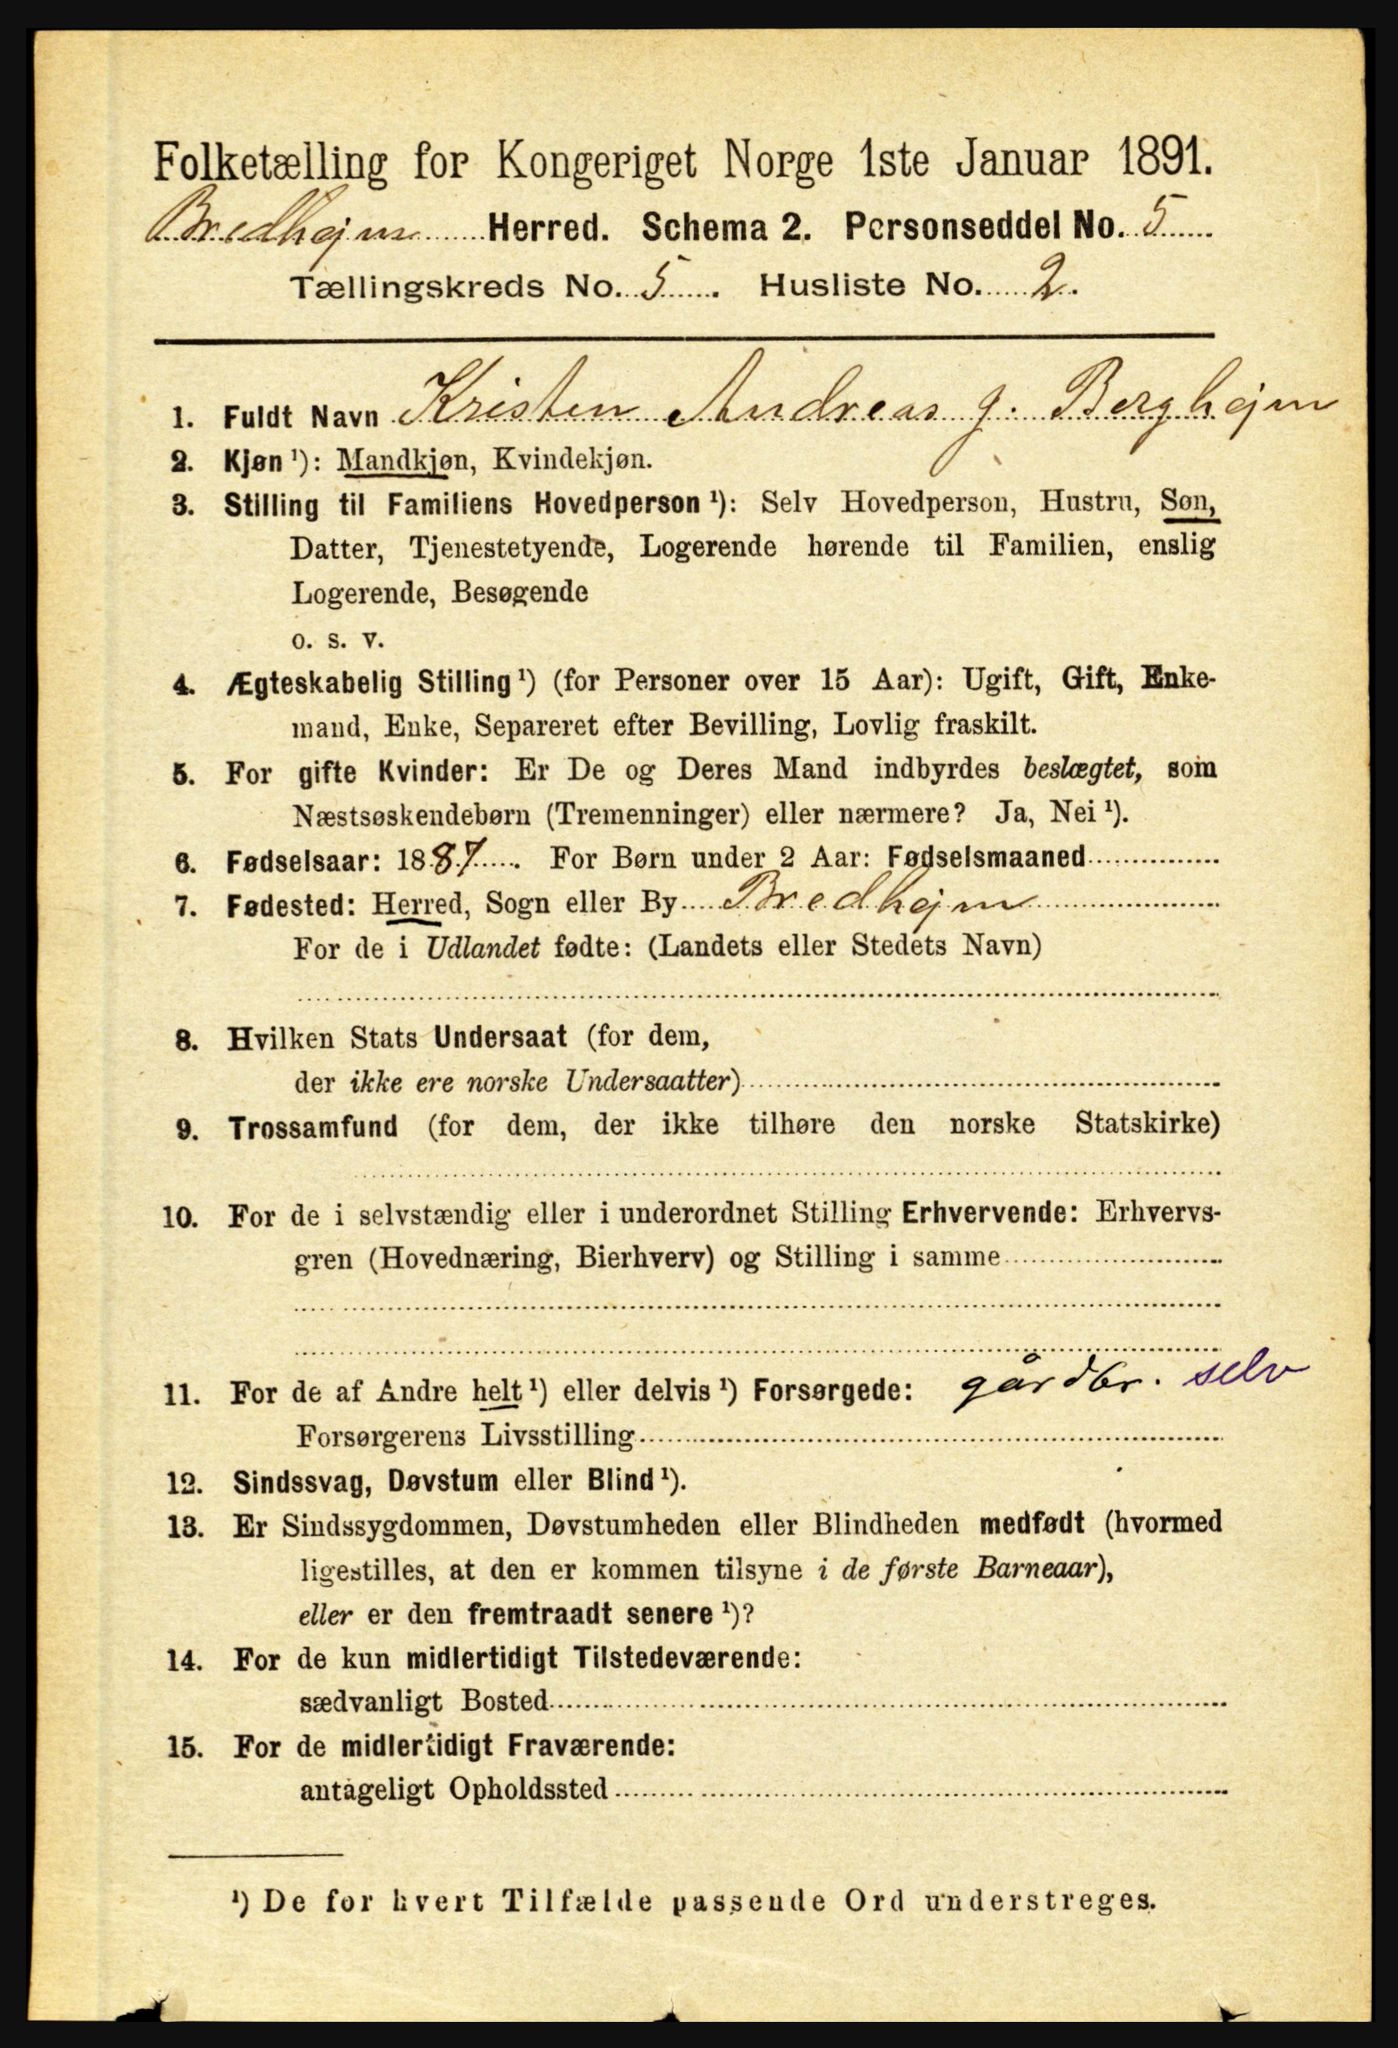 Folketælling for Kongeriget Norge 1ste Januar 1891.
Bredhejm Herred. Schema 2. Personseddel No. 5
Tællingskreds No. 5. Husliste No. 2.
1. Fuldt Navn Kristen Andreas J. Berghejm
2. Kjøn ¹): Mandkjøn, Kvindekjøn.
3. Stilling til Familiens Hovedperson ¹): Selv Hovedperson, Hustru, Søn,
Datter, Tjenestetyende, Logerende hørende til Familien, enslig
Logerende, Besøgende
o. s. v.
4. Ægteskabelig Stilling ¹) (for Personer over 15 Aar): Ugift, Gift, Enke-
mand, Enke, Separeret efter Bevilling, Lovlig fraskilt.
5. For gifte Kvinder: Er De og Deres Mand indbyrdes beslægtet, som
Næstsøskendebørn (Tremenninger) eller nærmere? Ja, Nei ¹).
6. Fødselsaar: 1887. For Børn under 2 Aar: Fødselsmaaned
7. Fødested: Herred, Sogn eller By Bredhejm
For de i Udlandet fødte: (Landets eller Stedets Navn)
8. Hvilken Stats Undersaat (for dem,
der ikke ere norske Undersaatter)
9. Trossamfund (for dem, der ikke tilhøre den norske Statskirke)
10. For de i selvstændig eller i underordnet Stilling Erhvervende: Erhvervs-
gren (Hovednæring, Bierhverv) og Stilling i samme
11. For de af Andre helt ¹) eller delvis ¹) Forsørgede: gårdbr. selv
Forsørgerens Livsstilling
12. Sindssvag, Døvstum eller Blind ¹).
13. Er Sindssygdommen, Døvstumheden eller Blindheden medfødt (hvormed
ligestilles, at den er kommen tilsyne i de første Barneaar),
eller er den fremtraadt senere ¹)?
14. For de kun midlertidigt Tilstedeværende:
sædvanligt Bosted
15. For de midlertidigt Fraværende:
antageligt Opholdssted
¹) De for hvert Tilfælde passende Ord understreges.